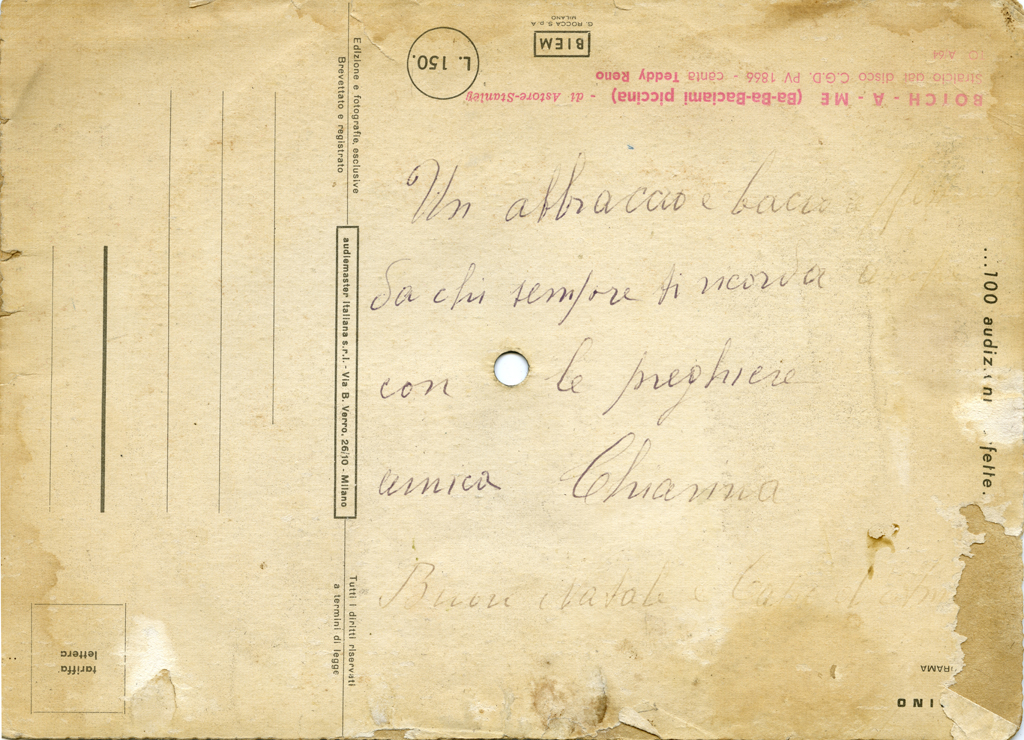 BOICH - A - ME (Ba-Ba-Baciami piccina) - di Astore-Stanley
Stralcio dal disco C.G.D. PV 1866 - canta Teddy Reno
BIEM
G. ROCCA S.p.A.
MILANO
L. 150.
Edizione e fotografie, esclusive
Brevettato e registrato
audiomaster italiana s.r.l. - Via B. Verro, 26/10 - Milano
Tutti i diritti riservati
a termini di legge
tariffa
lettera
...100
Un abbraccio e bacio
da chi sempre ti ricorda
con le preghiere
amica Chiarina
Buon Natale e